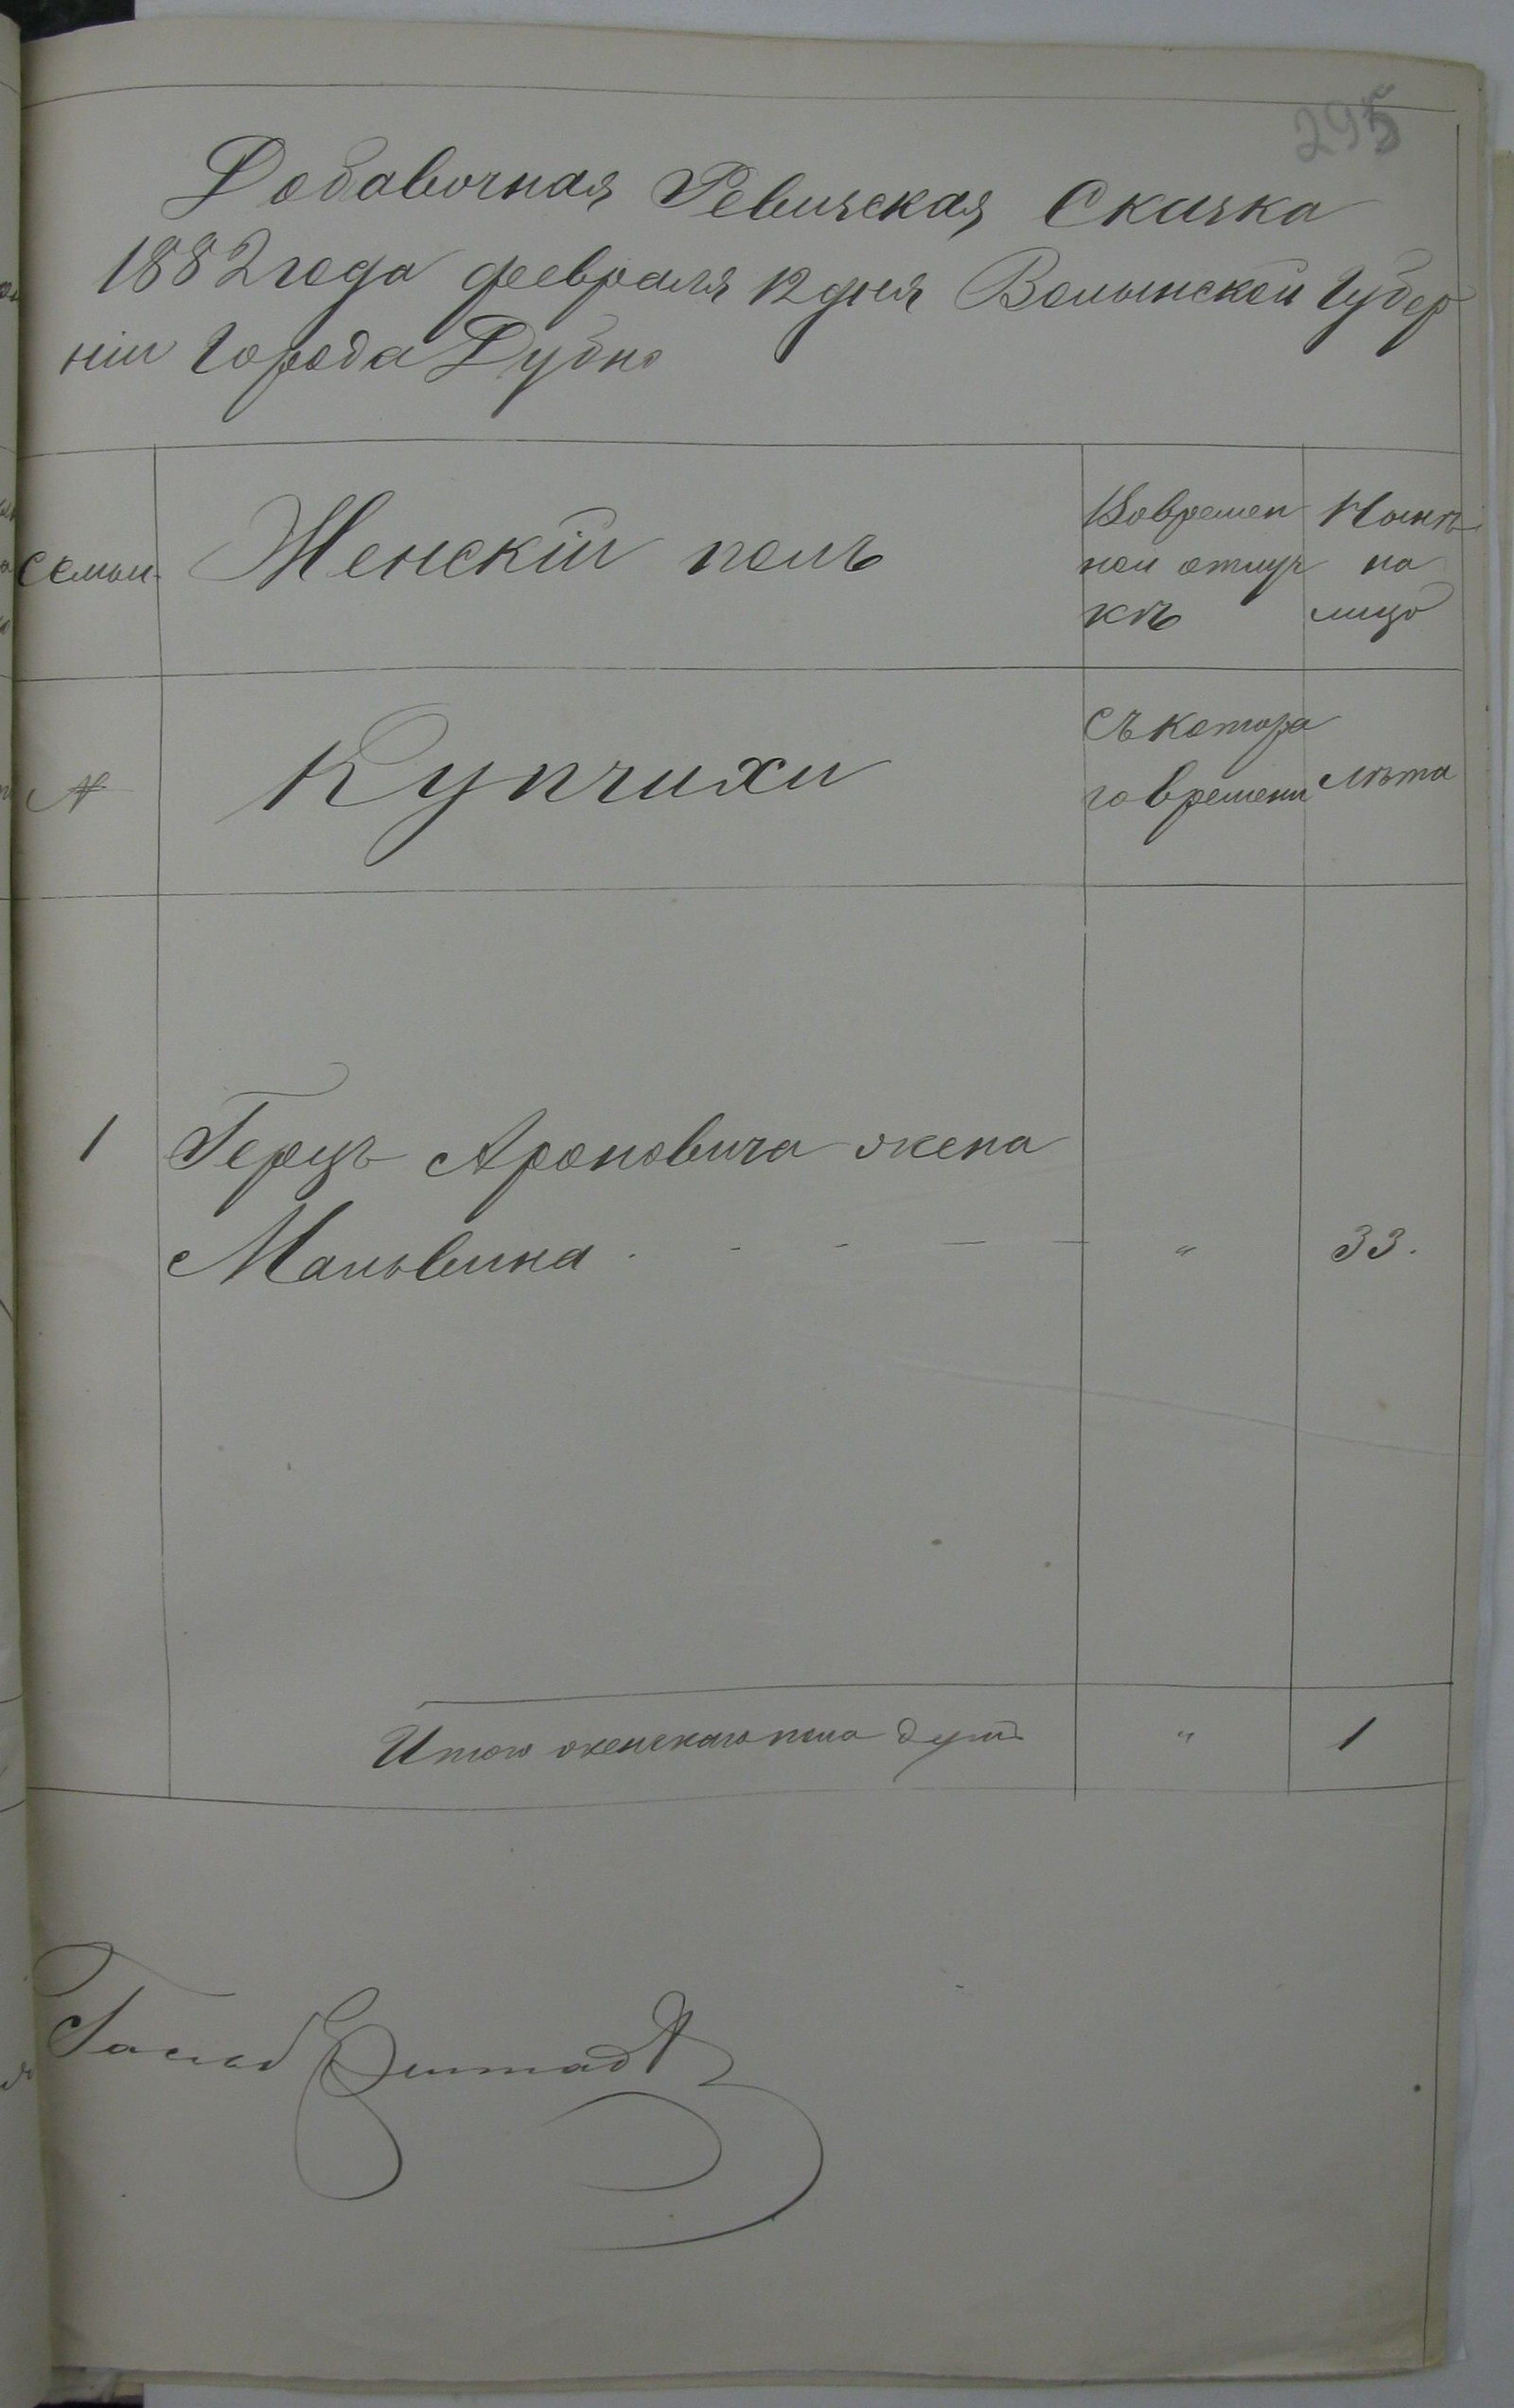 295
Добавочная Ревизская Сказка
1882 года февраля 12 дня Волынской Губер
ніи Города Дубно
семьи
Женскій полъ
Вовремен
ной отлуч
кѣ
Нынѣ
на
лицо
№
Купчихи
Съ котора
го времени
лѣта
1
Герцъ Ароновича жена
Мальвина - - - - " 33.
Итого женскаго пола душъ " 1